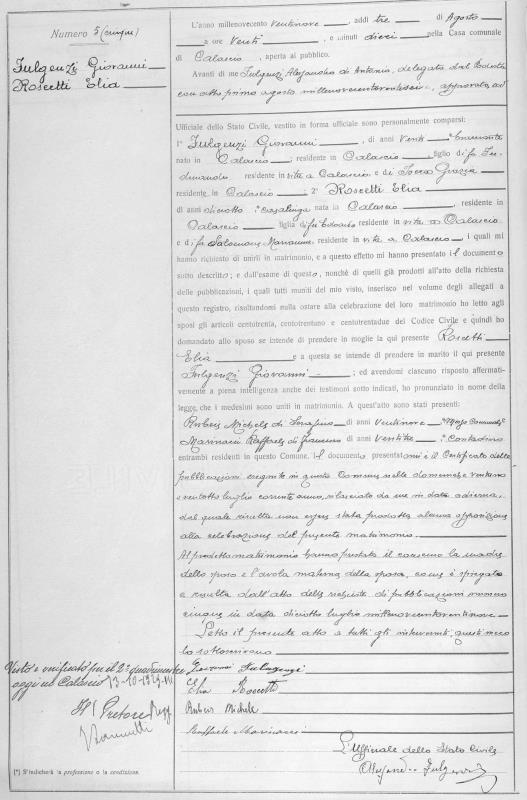 Numero 5 (cinque)
Fulgenzi Giovanni
Roscetti Elia
L'anno millenovecento ventinove, addì tre di Agosto
a ore Venti, e minuti dieci nella Casa comunale
di Calascio, aperta al pubblico.
Avanti di me Fulgenzi Alessandro di Antonio, delegato dal Podestà
con atto primo agosto millenovecentoventisei, approvato,
Ufficiale dello Stato Civile, vestito in forma ufficiale sono personalmente comparsi:
1° Fulgenzi Giovanni, di anni Venti,
nato in Calascio, residente in Calascio, figlio di fu Fer-
dinando residente in vita a Calascio e di Tocco Grazia
residente in Calascio; 2° Roscetti Elia
di anni diciotto, casalinga nata in Calascio, residente in
Calascio, figlia di fu Edoardo residente in vita a Calascio
e di fu Salomone Marianna, residente in vita a Calascio, i quali mi
hanno richiesto di unirli in matrimonio, e a questo effetto mi hanno presentato il documento
sotto descritto; e dall'esame di questo, nonchè di quelli già prodotti all'atto della richiesta
delle pubblicazioni, i quali tutti muniti del mio visto, inserisco nel volume degli allegati a
questo registro, risultandomi nulla ostare alla celebrazione del loro matrimonio ho letto agli
sposi gli articoli centotrenta, centotrentuno e centotrentadue del Codice Civile e quindi ho
domandato allo sposo se intende di prendere in moglie la qui presente Roscetti
Elia e a questa se intende di prendere in marito il qui presente
Fulgenzi Giovanni; ed avendomi ciascuno risposto affermati-
vamente a piena intelligenza anche dei testimoni sotto indicati, ho pronunziato in nome della
legge, che i medesimi sono uniti in matrimonio. A quest'atto sono stati presenti:
Michele di Serafino di anni Ventinove,
Marinacci Raffaele di Francesco di anni Ventitre, Contadino
entrambi residenti in questo Comune. Il documento presentatomi è il Certificato delle
pubblicazioni eseguite in questo Comune nelle domeniche ventuno
e ventotto luglio corrente anno, rilasciato da me in data odierna,
dal quale risulta non essere stata prodotta alcuna opposizione
alla celebrazione del presente matrimonio.
Al predetto matrimonio hanno prestato il consenso la madre
dello sposo e l'avola materna della sposa, come è spiegato
e risulta dall'atto della richiesta di pubblicazioni numero
cinque in data diciotto luglio millenovecentoventinove.
Letto il presente atto a tutti gli intervenuti, questi meco
lo sottoscrivono.
Visto e verificato pel 2° quadrimestre
oggi in Calascio 13-10-1929-VII
Il Pretore Regg
Giovanni Fulgenzi
Elia Roscetti
Michele
Raffaele Marinacci
L'Ufficiale dello Stato Civile
Fulgenzi
[*] S'indicherà la professione o la condizione.